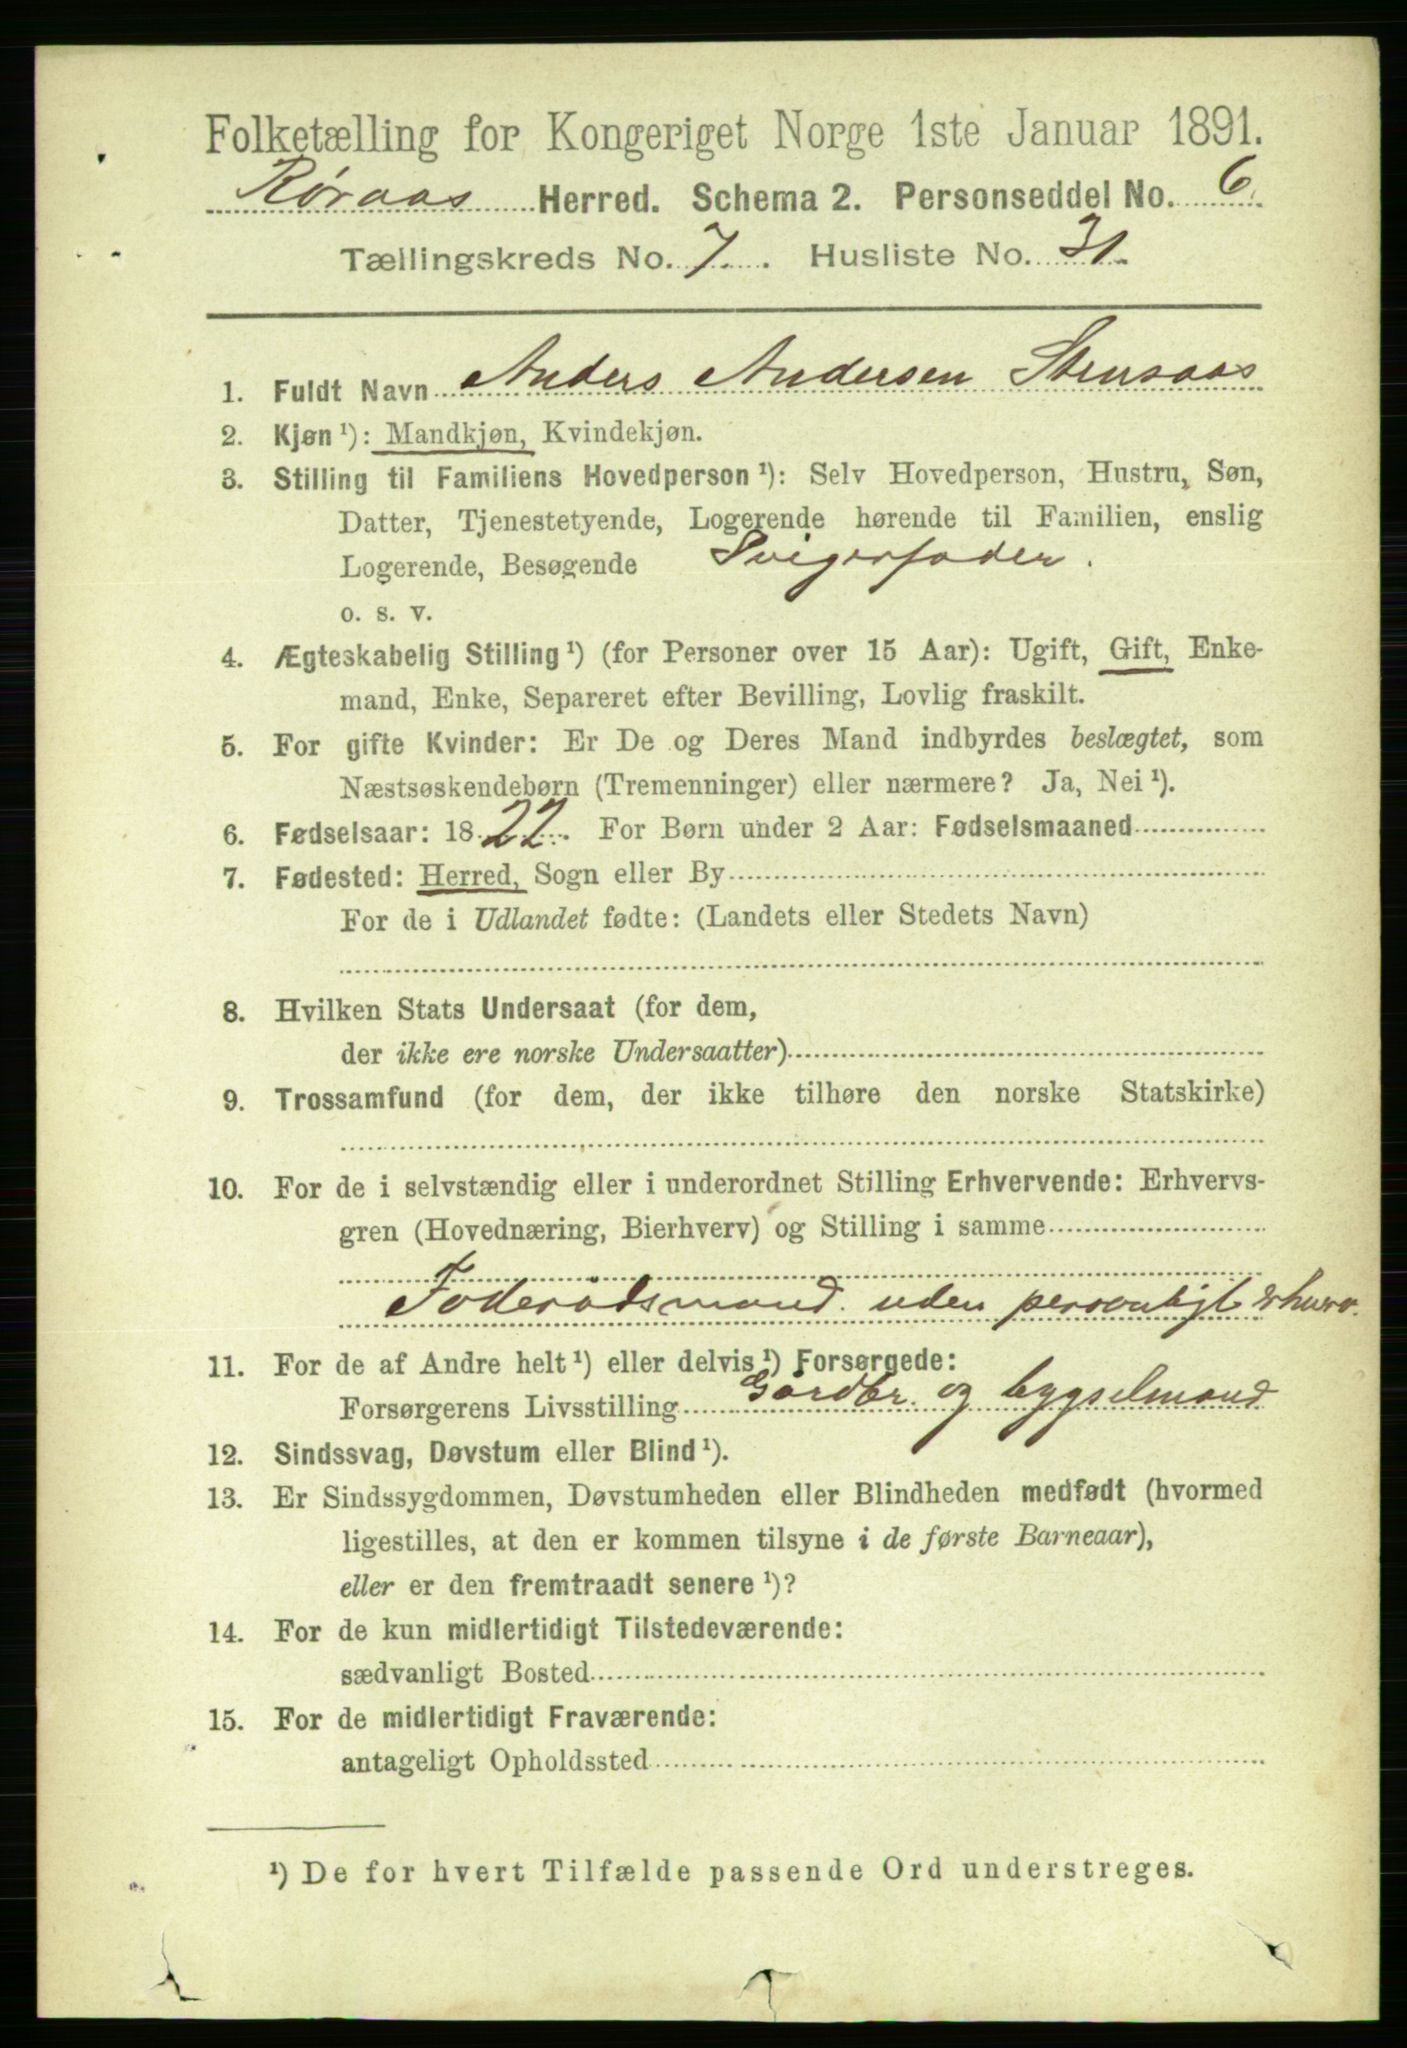 Folketælling for Kongeriget Norge 1ste Januar 1891.
Røraas Herred. Schema 2. Personseddel No. 6.
Tællingskreds No. 7. Husliste No. 31.
1. Fuldt Navn Anders Andersen Stensaas
2. Kjøn ¹): Mandkjøn, Kvindekjøn.
3. Stilling til Familiens Hovedperson ¹): Selv Hovedperson, Hustru, Søn,
Datter, Tjenestetyende, Logerende hørende til Familien, enslig
Logerende, Besøgende Svigerfader.
o. s. v.
4. Ægteskabelig Stilling ¹) (for Personer over 15 Aar): Ugift, Gift, Enke-
mand, Enke, Separeret efter Bevilling, Lovlig fraskilt.
5. For gifte Kvinder: Er De og Deres Mand indbyrdes beslægtet, som
Næstsøskendebørn (Tremenninger) eller nærmere? Ja, Nei ¹).
6. Fødselsaar: 1822. For Børn under 2 Aar: Fødselsmaaned
7. Fødested: Herred, Sogn eller By
For de i Udlandet fødte: (Landets eller Stedets Navn)
8. Hvilken Stats Undersaat (for dem,
der ikke ere norske Undersaatter)
9. Trossamfund (for dem, der ikke tilhøre den norske Statskirke)
10. For de i selvstændig eller i underordnet Stilling Erhvervende: Erhvervs-
gren (Hovednæring, Bierhverv) og Stilling i samme
Føderådsmand. uden personligt erhverv.
11. For de af Andre helt ¹) eller delvis ¹) Forsørgede:
Forsørgerens Livsstilling Gårdbr. og bygselmand
12. Sindssvag, Døvstum eller Blind ¹).
13. Er Sindssygdommen, Døvstumheden eller Blindheden medfødt (hvormed
ligestilles, at den er kommen tilsyne i de første Barneaar),
eller er den fremtraadt senere ¹)?
14. For de kun midlertidigt Tilstedeværende:
sædvanligt Bosted
15. For de midlertidigt Fraværende:
antageligt Opholdssted
¹) De for hvert Tilfælde passende Ord understreges.